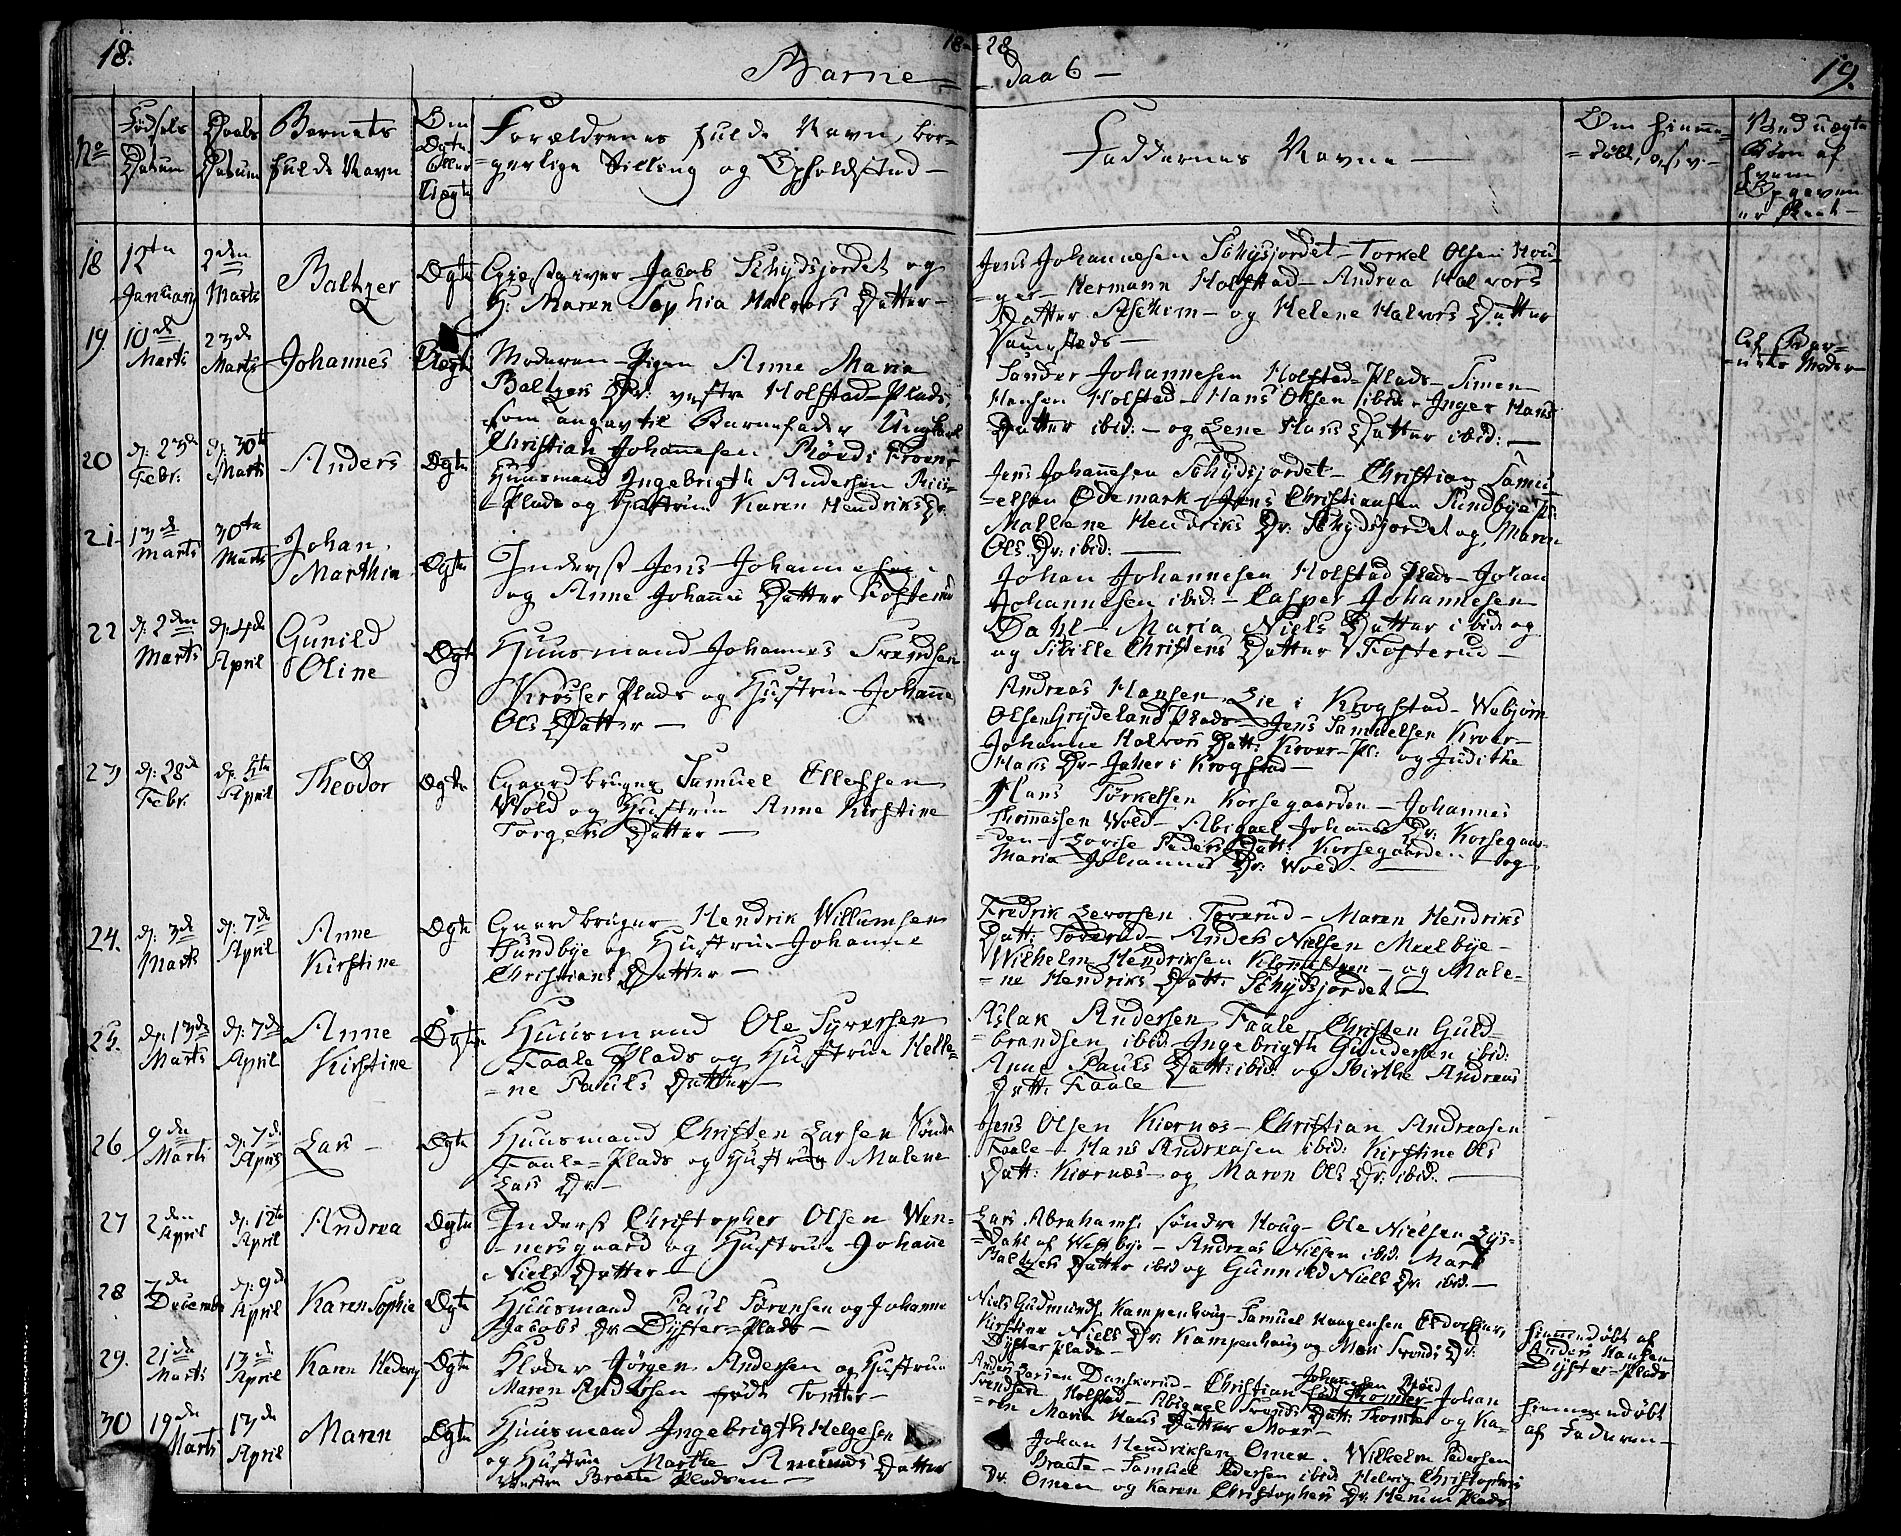 18.
18
28
Barne
Daab
19.
No
Fødsels Datum
Daabs Datum
Barnets fulde Navn
Om Ægte Eller Uægte
Forældrenes fulde Navn, bor-
gerlige Stilling og Opholdsted
Faddernes Navne
Om hiemme-
døbt, o.s.v.
Ved uægte
Børn af
hvem
Opgaven
er skeet
18
12te Januarij
2den Marts
Baltzer
Ægte
Giestgiver Jacob Schydsjordet og
H: Maren Sophia Halvors Datter
Jens Johannesen Schydsjordet - Torkel Olsen Hou-
ger - Hermann Holstad - Andrea Halvors
Datter Askim - og Helene Halvors Datter
19.
10de Marts
23de Marts
Johannes
Uægte
Moderen - Pigen Anne Maria
Baltzers Dr: vestre Holstad-Plads
som angav til Barnefader Ungkarl
Christian Johannesen
Sander Johannesen Holstad-Plads - Simen
Hansen Holstad - Hans Olsen ibid - Inger Hans
Datter ibid: - og Lene Hans Datter ibid:
Moder
20
d: 23de Febr:
d: 30te Marts
Anders
Ægte
Huusmand Ingebrigth Andersen Riis-
Plads og Hustrue Karen Hendriks Dr.
Jens Johannesen Schydsjordet - Christian Samu-
elsen Ødemark - Jens Christiansen Sundbye Pl:
Mallene Hendriks Dr. Schydsjordet og Maren
Ols Dr: ibid:
21
13de Marts
30te Marts
Johan
Marthin
Ægte
Inderst Jens Johannesen
og Anne Johanne Datter Fosterud
Johan Johannesen Holstad Plads - Johan
Johannesen ibid: - Casper Johannesen
Dahl - Maria Niels Datter ibid og
og Sibille Christens Datter Fosterud
22
d: 2den Marts
d: 4de April
Gunild
Oline
Ægte
Huusmand Johannes Svendsen
Krosser Plads og Hustrue Johanne
Ols Datter
Andreas Hansen Lie i Krogstad - Webjørn
Olsen Grydeland Plads - Jens Samuelsen Kroer
Johanne Halvors Datt: Kroer-Pl: og Judithe
Hans Dr. Jaher i Krogstad
23
d: 28de Febr.
d: 5te April
Theodor
Ægte
Gaardbruger Samuel Ellefsen
Wold og Hustrue Anne Kirstine
Torgers Datter
Hans Torkelsen Korsegaarden - Johannes
Thomassen Wold - Abigael Johannes Dr: Korsegaar-
den - Lovise Peders Datt: Korsegaarden - og
Maria Johannes Dr: Wold.
24.
d: 3de Marts
d: 7de April
Anne
Kirstine
Ægte
Gaardbruger Hendrik Willumsen
Sundbye og Hustrue Johanne
Christians Datter
Fredrik Sevorsen Toverud - Maren Hendriks
Datt: Toverud - Anders Nielsen Meelbye -
Wilhelm Hendriksen Klommesteen - og Male-
ne Hendriks Datt: Schydsjordet
25.
d: 13de Marts
d: 7de April
Anne
Kirstine
Ægte
Huusmand Ole Syversen
Faale Plads og Hustrue Helle-
ne Pauls Datter
Aslak Andersen Faale - Christen Guld-
brandsen ibid. Ingebrigth Gundersen ibid:
Anne Pauls Datt: ibid og Birthe Andreas
Datt: Faale
26
9de Marts
d: 7de April
Lars
Ægte
Huusmand Christen Larsen Søndre
Faale-Plads og Hustrue Malene
Lars Dr.
Jens Olsen Kiernes - Christian Andreasen
Faale - Hans Andreasen ibid: Kirstine Ols
Datt: Kiernæs - og Maren Ols Dr: ibid:
27
2den April
d: 12te April
Andrea
Ægte
Inderst Christopher Olsen Wen-
nersgaard og Hustrue Johanne
Niels Datter
Lars Abrahams: søndre Houg - Ole Nielsen Lys-
Dahl af Westbye - Andreas Nilsen ibid: Mari
Baltzers Datter ibid og Gunnild Niels Dr. ibid.
28
7de December
d: 9de April
Karen Sophie
Ægte
Huusmand Paul Sørensen og Johanne
Jacobs Dr. Dyster-Plads
Niels Gudmunds: Kampenhoug - Samuel Haagensen
Kirstine Niels Dr. Kampenhaug og Mari Svends Dr.
Dyster Plads
Hiemmedøbt af
Anders Hansen
Dyster-Plads
29.
21de Marts
13de April
Karen Hedevig
Ægte
Kloder Jørgen Andersen og Hustrue
Maren Andersen født Tomter
Anders Larsen Danskerud - Christian Johannesen født Thomter - Johan
Svendsen Holstad - Abiguel Svends Datt: Thomter og Ka-
ren Maria Hans Datter Moer
Hiemmedøbt
af Faderen
30
19de Marts
13de April
Maren
Ægte
Huusmand Ingebrigth Helgesen
og Hustrue Marthe Amunds Datter
Vestre Braate Pladsen
Johan Hendriksen Omen. Wilhelm Pedersen
Braate - Samuel Pedersen ibid Helvig Christophers
Dr. Omen og Karen Christophers Dr. Herum Plads